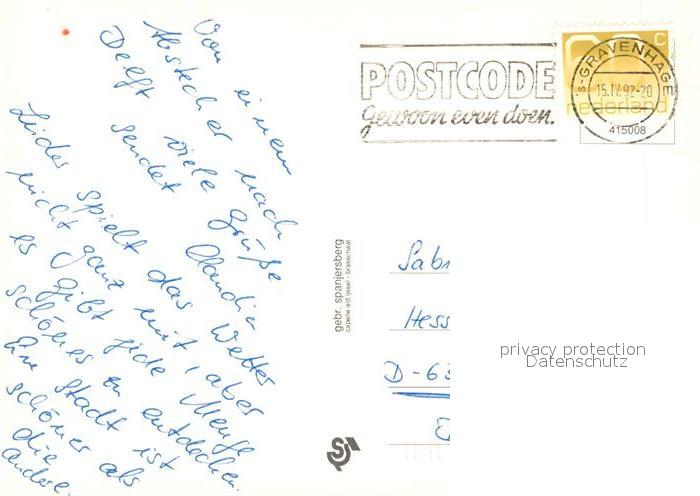 Von einem
Abstecher nach
Delft sendet
viele Grüße
Claudia
Leider spielt das Wetter
nicht ganz mit, aber
es gibt jede Menge
schönes zu entdecken.
Eine Stadt ist
schöner als
die
andere.
POSTCODE
Gewoon even doen.
's-GRAVENHAGE
15.IV.92-20
415008
c
nederland
gebr. spanjersberg
capelle a/d ijssel - brasschaat
Sabr
Hess
D-63
privacy protection
Datenschutz